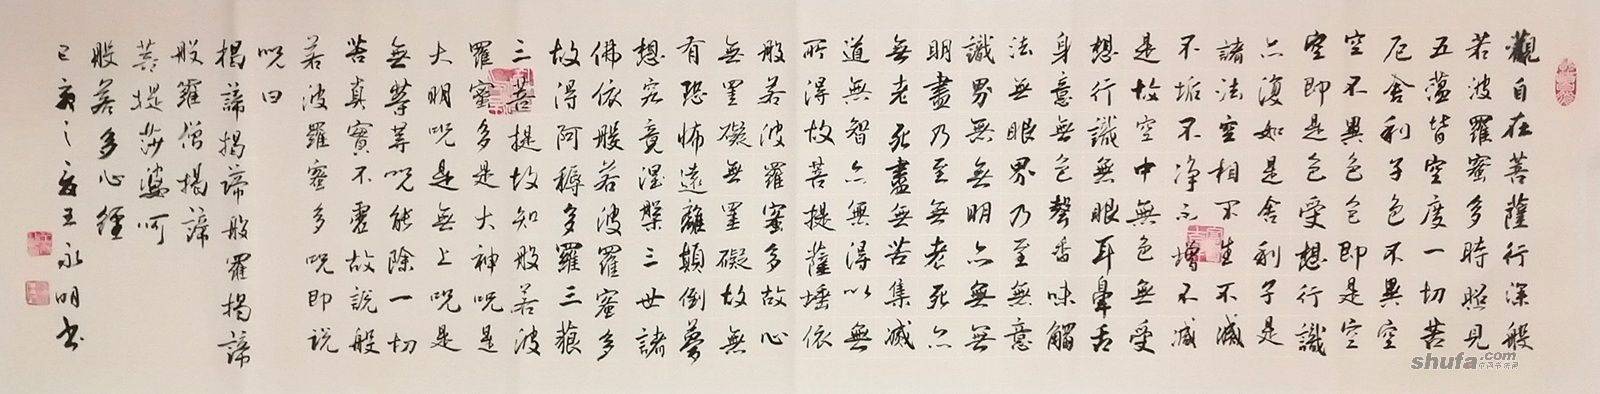 觀自在菩薩行深般
若波羅蜜多時照見
五蕴皆空度一切苦
厄舍利子色不異空
空不異色色即是空
空即是色受想行識
亦復如是舍利子是
諸法空相不生不滅
不垢不净不增不减
是故空中無色無受
想行識無眼耳鼻舌
身意無色聲香味觸
法無眼界乃至無意
識界無無明亦無無
明盡乃至無老死亦
無老死盡無苦集滅
道無智亦無得以無
所得故菩提薩埵依
般若波羅蜜多故心
無罣礙無罣礙故無
有恐怖遠離顛倒夢
想究竟涅槃三世諸
佛依般若波羅蜜多
故得阿耨多羅三藐
三菩提故知般若波
羅蜜多是大神呪是
大明呪是無上呪是
無等等呪能除一切
苦真實不虛故說般
若波羅蜜多呪即說
呪曰
揭諦揭諦般羅揭諦
般羅僧揭諦
菩提莎婆呵
般若多心經
己亥之夏王永明书
shufa.com
中国书法网